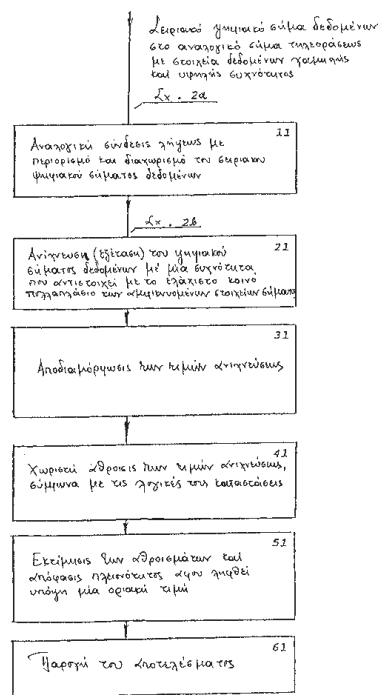 Σειριακό ψηφιακό σήμα δεδομένων
στο αναλογικό σήμα τηλεοράσεως
με στοιχεία δεδομένων χαμηλής
και υψηλής συχνότητος
Σχ. 2a
11
Αναλογική σύνδεσις λήψεως με
περιορισμό και διαχωρισμό του σειριακου
ψηφιακού σήματος δεδομένων
Σχ. 2b
21
Ανίχνευση (εξέταση) του ψηφιακού
σήματος δεδομένων με μία συχνότητα,
που αντιστοιχεί με το ελάχιστο κοινό
πολλαπλάσιο των στοιχείων σήματο
31
Αποδιαμόρφωσις των τιμών ανιχνεύσεως
41
Χωριστή άθροισις των τιμών ανιχνεύσεως,
σύμφωνα με τις λογικές τους καταστάσεις
51
Εκτίμησις των αθροισμάτων και
απόφασις πλειονότητος αφου ληφθεί
υπόψη μία οριακή τιμή
61
Παροχή του αποτελέσματος